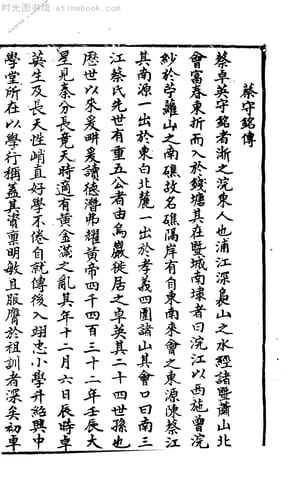 时光图书馆
www.bookinlife.net
蔡守銘傳
蔡卓英守銘者浙之浣東人也浦江深裊山之水經諸暨蕭山北
會富春東折而入於錢塘其在暨城南壕者曰浣江以西施曾浣
紗於苧蘿山之南礁故名礁隔岸有自東南來會之東源陳蔡江
其南源一出於東白北麓一出於孝義四圍諸山其會口曰南三
江蔡氏先世有重五公者由烏巖徙居之卓英其二十四世孫也
歷世以來爰畊爰讀德濳弗耀黃帝四千四百三十二年壬辰大
星見秦分長竟天時適有黃金滿之亂其年十二月六日辰時卓
英生及長天性峭直好學不倦自就傅後入翊忠小學升紹興中
學堂所在以學行稱蓋其資稟明敏且服膺於祖訓者深矣初車